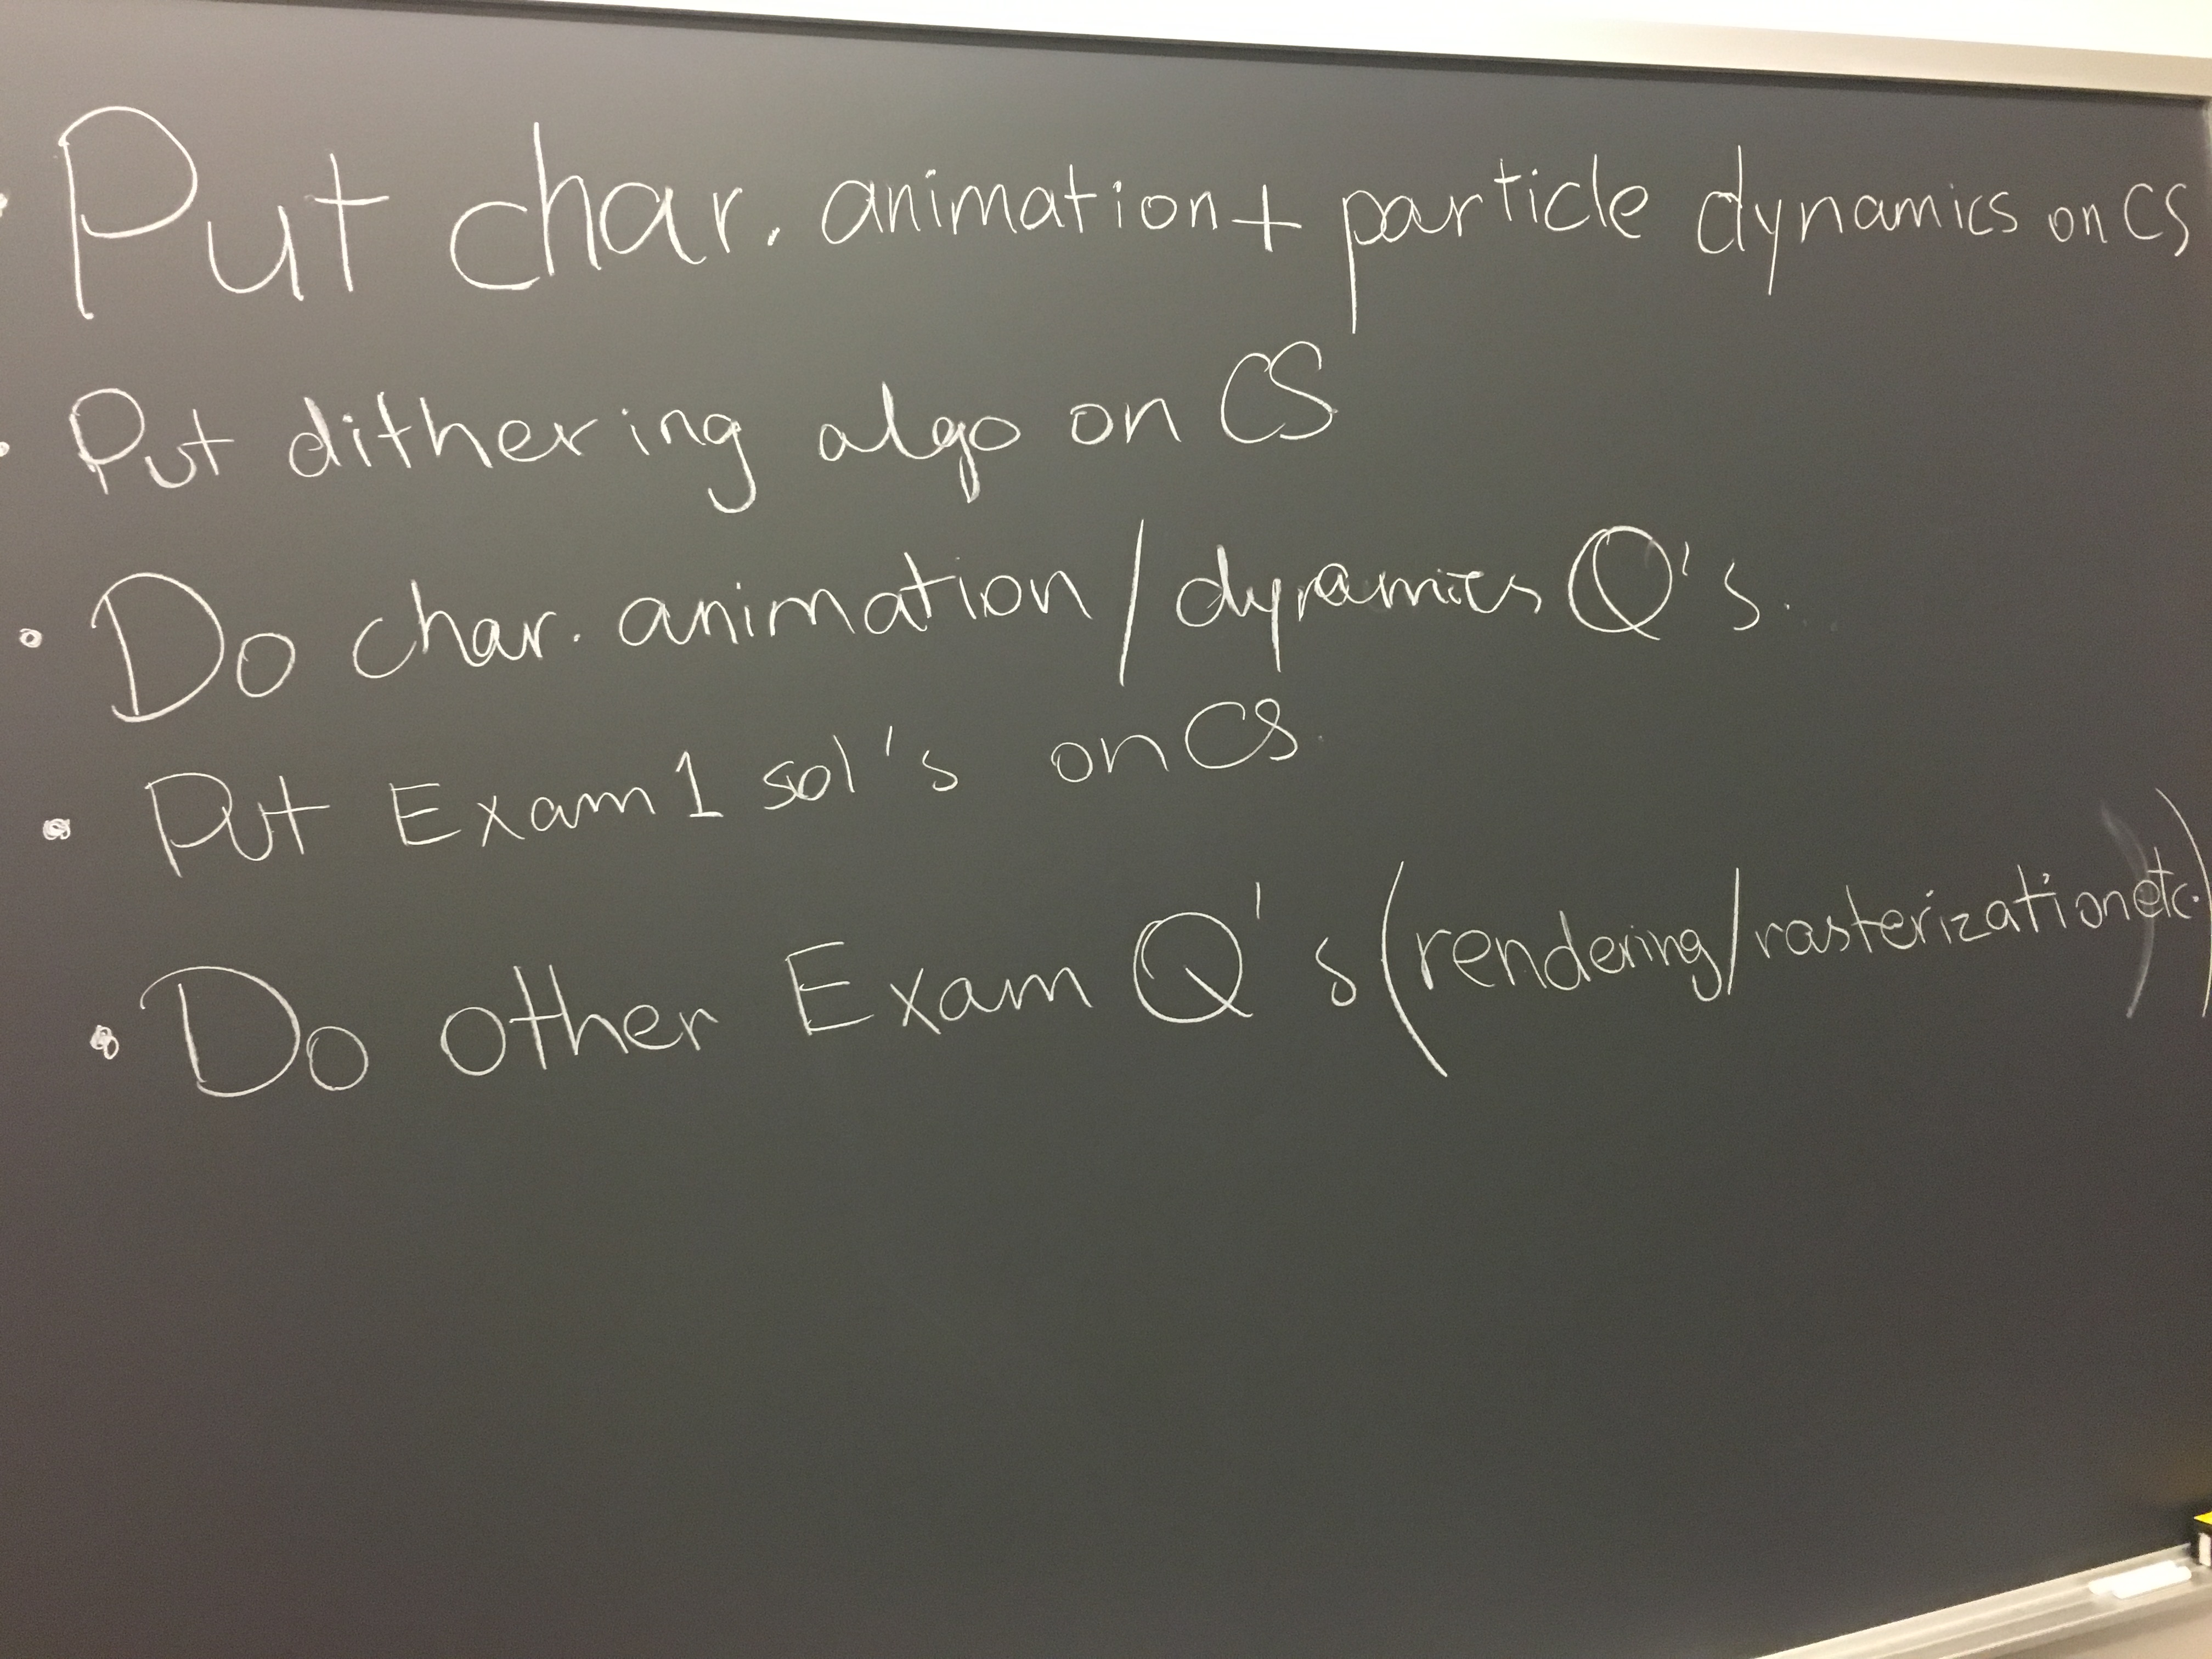 • Put char. animation + particle dynamics on CS
• Put dithering algo on CS
• Do char. animation / dynamics Q's.
• Put Exam 1 sol's on CS
• Do other Exam Q's (rendering/rasterization etc.)